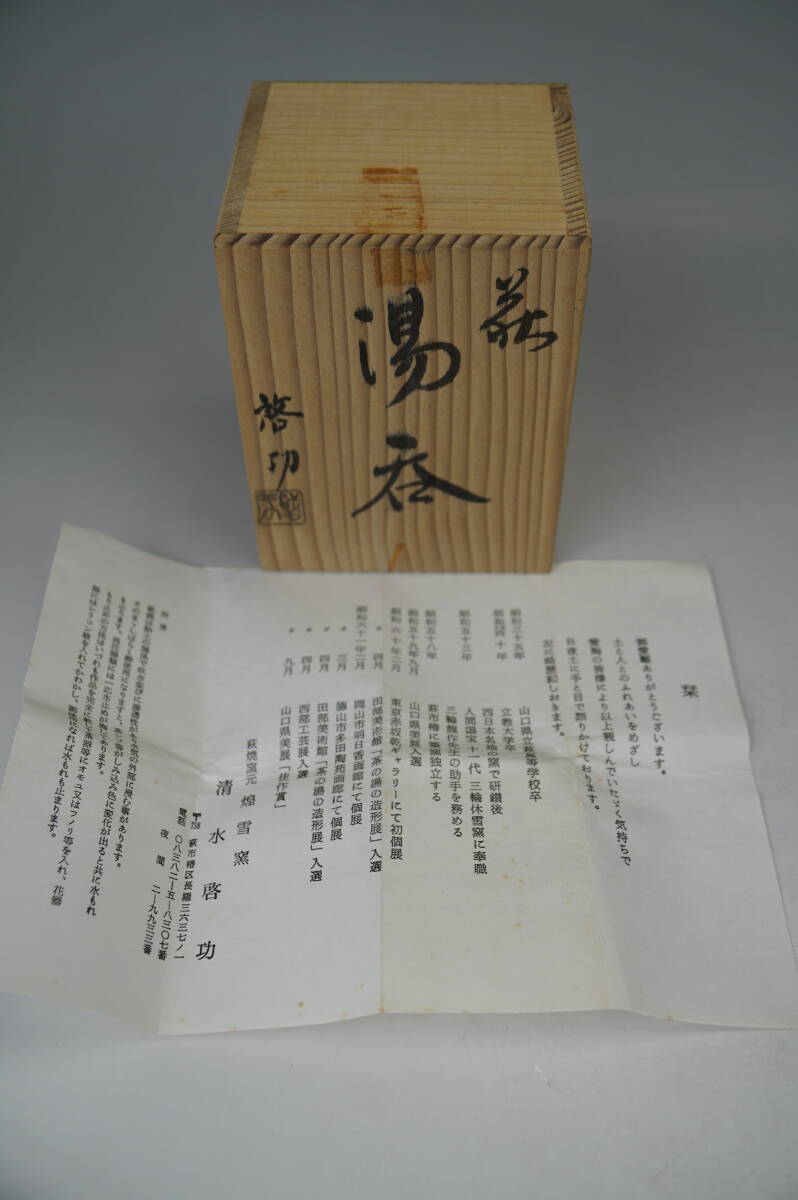 萩
湯呑
啓功
栞
御愛顧ありがとうございます。
土と人とのふれあいをめざし
愛陶の皆様により以上親しんでいたゞく気持ちで
日夜土に手と目で語りかけております。
左に略歴記しおきます。
昭和三十五年 山口県立萩高等学校卒
昭和四十年 立教大学卒
西日本各地の窯で研鑽後
昭和五十三年 人間国宝十一代 三輪休雪窯に奉職
三輪龍作先生の助手を務める
昭和五十八年 萩市椿に築窯独立する
昭和五十九年九月 山口県美展入選
昭和六十年二月 東京赤坂乾ギャラリーにて初個展
〃 四月 田部美術館「茶の湯の造形展」入選
昭和六十一年二月 岡山市明日香画廊にて個展
〃 三月 徳山市多田陶苑画廊にて個展
〃 四月 田部美術館「茶の湯の造形展」入選
〃 四月 西部工芸展入選
〃 九月 山口県美展「佳作賞」
萩焼窯元 煌雪窯
清水啓功
〒758 萩市椿区長羅三六三七ノ一
電話 〇八三八二―五―八三〇七番
夜間 二―九九三三番